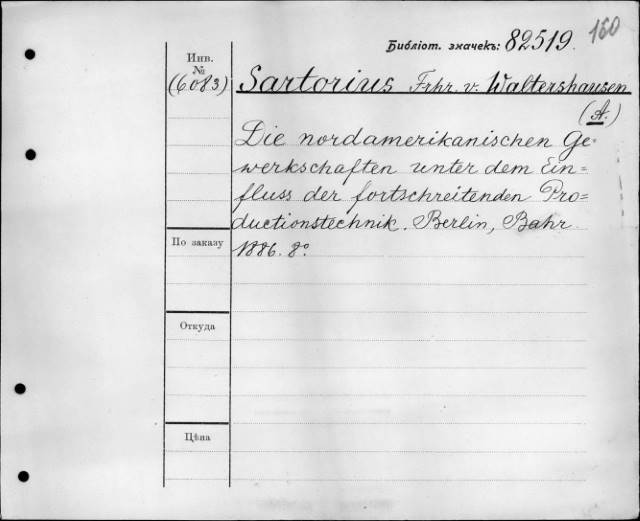 150
Библіот. значекъ: 82519.
Инв.
№
(6083)
Sartorius Frhr. v. Waltershausen
(A.)
Die nordamerikanischen Ge-
werkschaften unter dem Ein=
fluss der fortschreitenden Pro=
ductionstechnik. Berlin, Bahr.
1886. 8°.
По заказу
Откуда
Цѣна